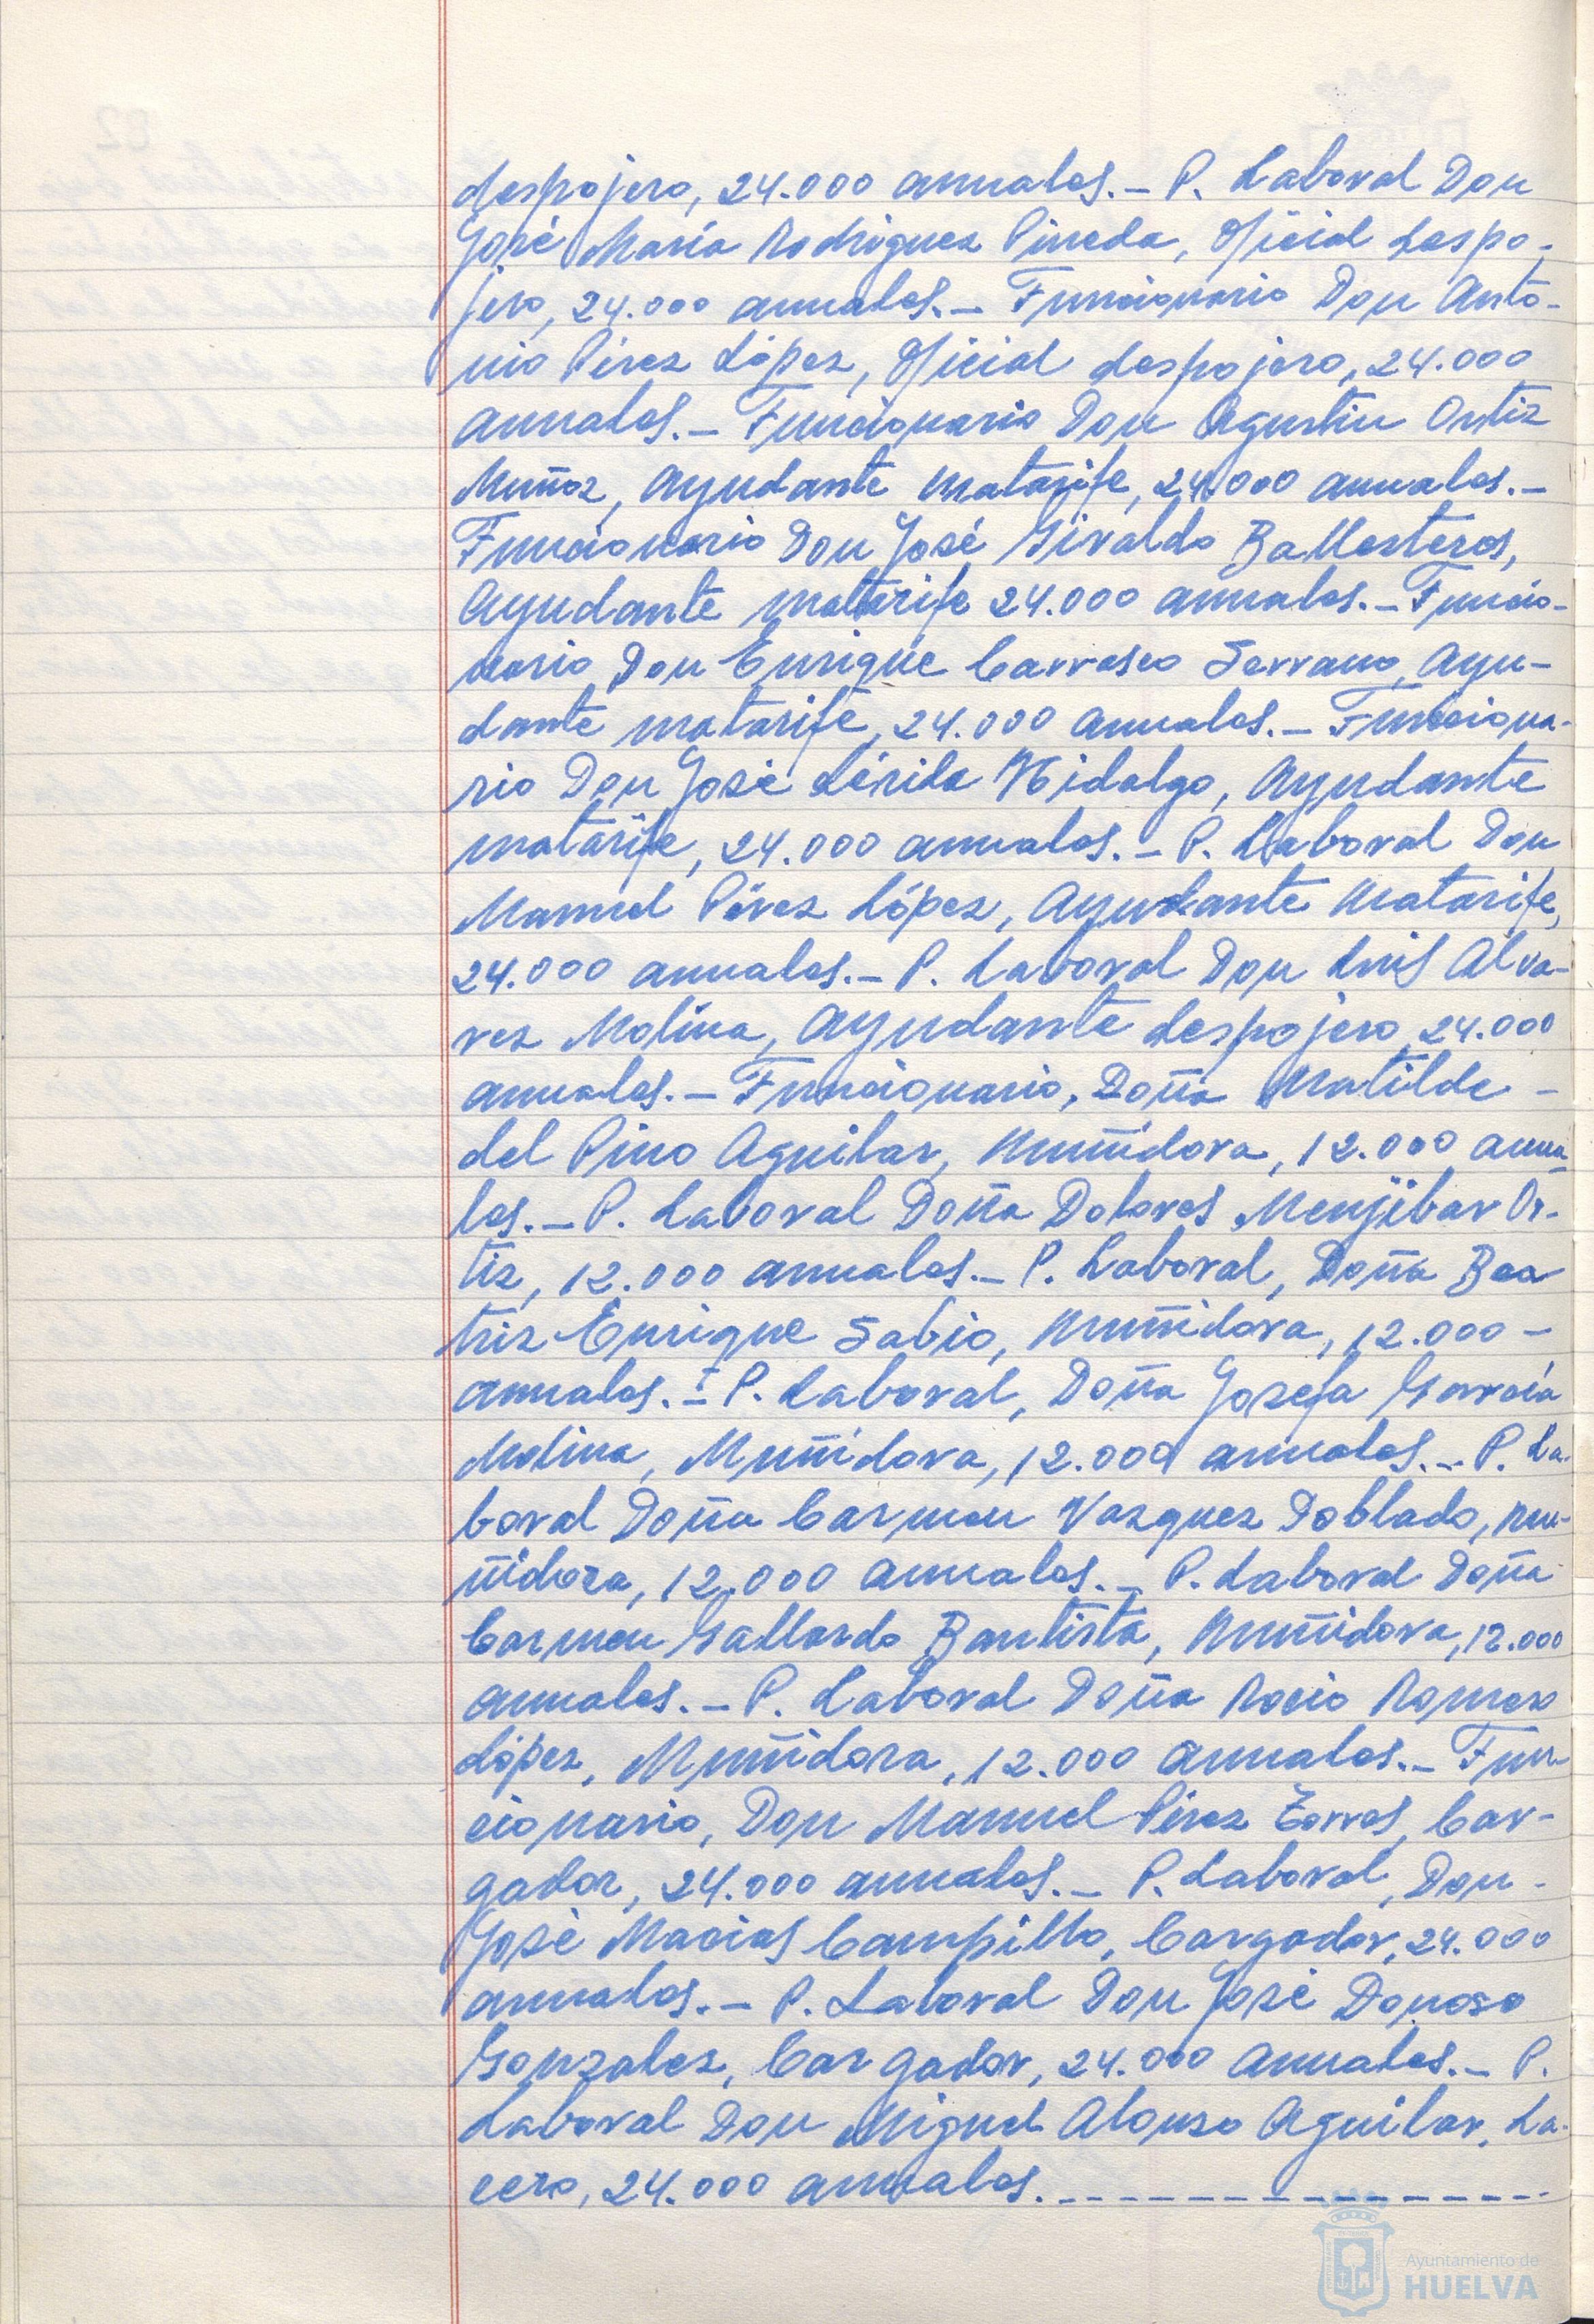 despojero, 24.000 anuales.- P. Laboral Don
José María Rodriguez Pineda, Oficial despo-
jero, 24.000 anuales.- Funcionario Don Anto-
nio Pérez López, Oficial despojero, 24.000
anuales.- Funcionario Don Agustin Ortiz
Muñoz, Ayudante matarife, 24.000 anuales.-
Funcionario Don José Giraldo Ballesteros,
Ayudante matarife 24.000 anuales.- Funcio-
nario Don Enrique Carrasco Serrano, Ayu-
dante matarife, 24.000 anuales.- Funciona-
rio Don José Lérida Hidalgo, Ayudante
matarife, 24.000 anuales.- P. Laboral Don
Manuel Pérez López, Ayudante Matarife,
24.000 anuales.- P. Laboral Don Luis Alva-
rez Molina, Ayudante despojero, 24.000
anuales.- Funcionario, Doña Matilde -
del Pino Aguilar, Muñidora, 12.000 anua
les.- P. Laboral Doña Dolores Menjibar Or-
tiz, 12.000 anuales.- P. Laboral, Doña Bea
triz Enrique Sabio, Muñidora, 12.000 -
anuales.- P. Laboral, Doña Josefa Garcia
Molina, Muñidora, 12.000 anuales.- P. La-
boral Doña Carmen Vazquez Doblado, mu-
ñidora, 12.000 anuales.- P. Laboral Doña
Carmen Gallardo Bautista, Muñidora, 12.000
anuales.- P. Laboral Doña Rocio Romero
López, Muñidora, 12.000 anuales.- Fun-
cionario, Don Manuel Pérez Torres, Car-
gador, 24.000 anuales.- P. Laboral, Don -
José Macias Campillo, Cargador, 24.000
anuales.- P. Laboral Don José Donoso
Gonzalez, Cargador, 24.000 anuales.- P.
Laboral Don Miguel Alonso Aguilar, La-
cero, 24.000 anuales.- - - - - - - - - -
Ayuntamiento de
HUELVA